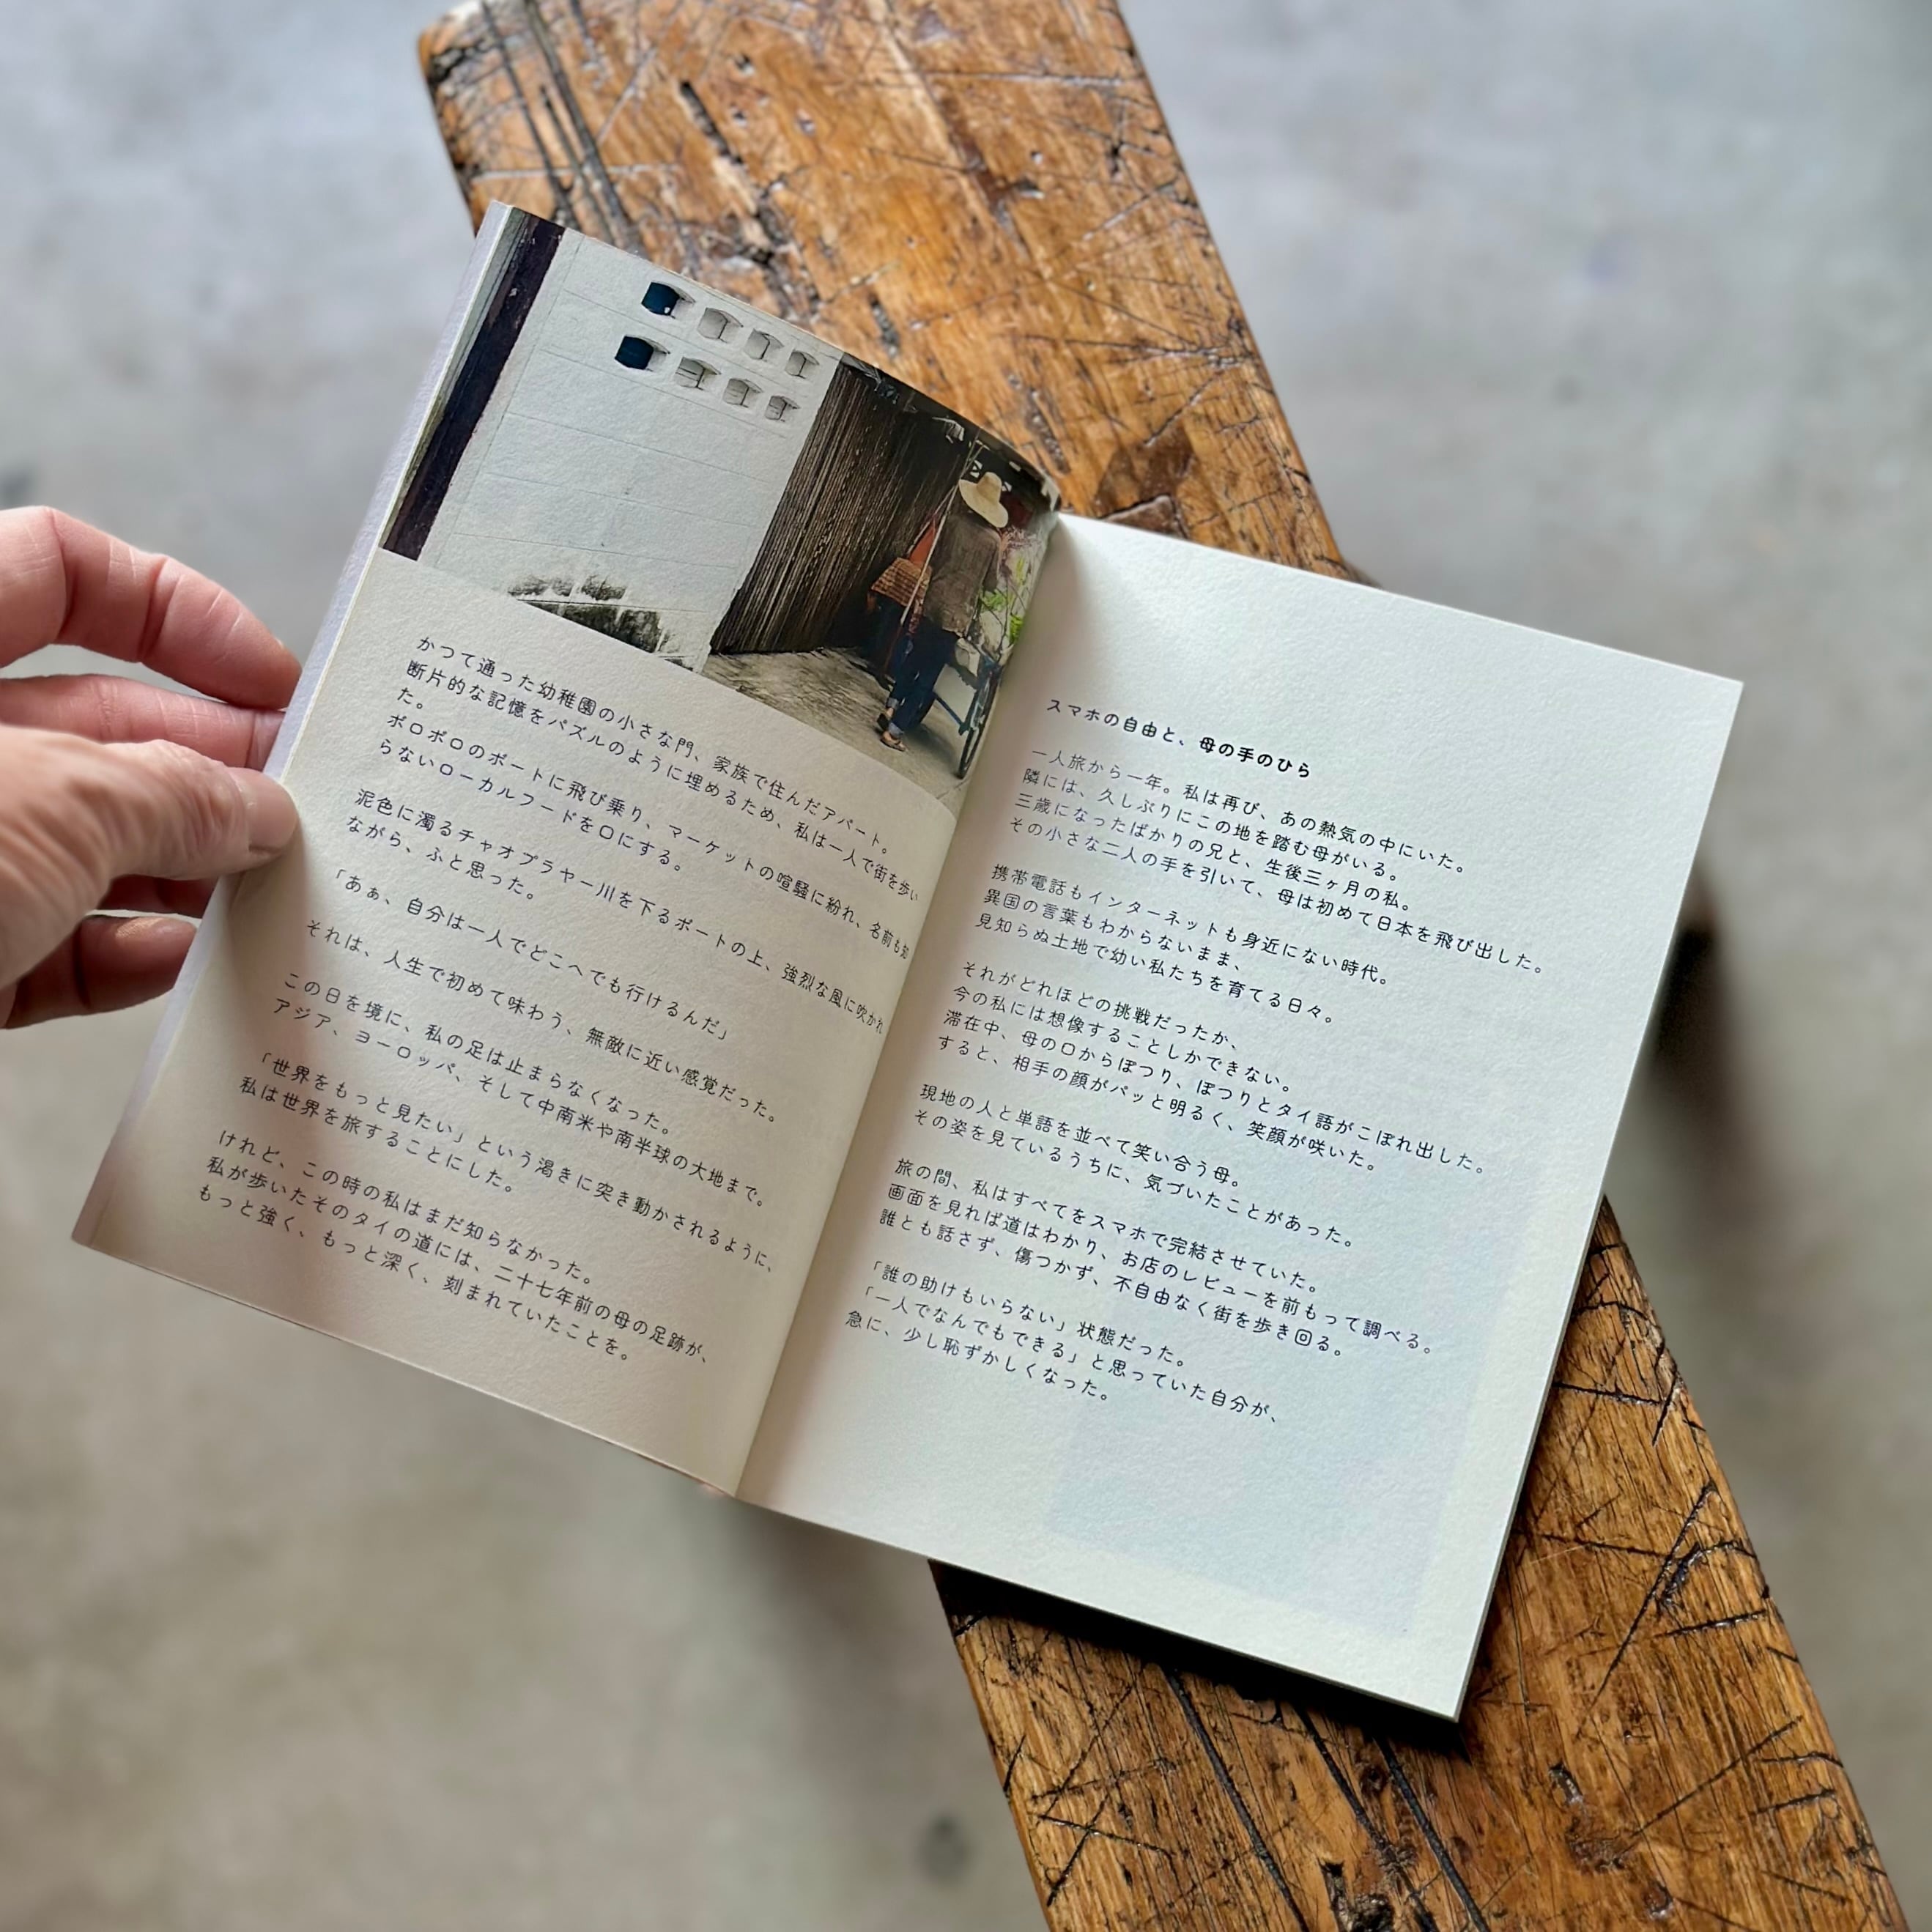 かつて通った幼稚園の小さな門、家族で住んだアパート。
断片的な記憶をパズルのように埋めるため、私は一人で街を歩い
た。
ボロボロのボートに飛び乗り、マーケットの喧騒に紛れ、名前も知
らないローカルフードを口にする。
泥色に濁るチャオプラヤー川を下るボートの上、強烈な風に吹かれ
ながら、ふと思った。
「あぁ、自分は一人でどこへでも行けるんだ」
それは、人生で初めて味わう、無敵に近い感覚だった。
この日を境に、私の足は止まらなくなった。
アジア、ヨーロッパ、そして中南米や南半球の大地まで。
「世界をもっと見たい」という渇きに突き動かされるように、
私は世界を旅することにした。
けれど、この時の私はまだ知らなかった。
私が歩いたそのタイの道には、二十七年前の母の足跡が、
もっと強く、もっと深く、刻まれていたことを。
スマホの自由と、母の手のひら
一人旅から一年。私は再び、あの熱気の中にいた。
隣には、久しぶりにこの地を踏む母がいる。
三歳になったばかりの兄と、生後三ヶ月の私。
その小さな二人の手を引いて、母は初めて日本を飛び出した。
携帯電話もインターネットも身近にない時代。
異国の言葉もわからないまま、
見知らぬ土地で幼い私たちを育てる日々。
それがどれほどの挑戦だったか、
今の私には想像することしかできない。
滞在中、母の口からぽつり、ぽつりとタイ語がこぼれ出した。
すると、相手の顔がパッと明るく、笑顔が咲いた。
現地の人と単語を並べて笑い合う母。
その姿を見ているうちに、気づいたことがあった。
旅の間、私はすべてをスマホで完結させていた。
画面を見れば道はわかり、お店のレビューを前もって調べる。
誰とも話さず、傷つかず、不自由なく街を歩き回る。
「誰の助けもいらない」状態だった。
「一人でなんでもできる」と思っていた自分が、
急に、少し恥ずかしくなった。